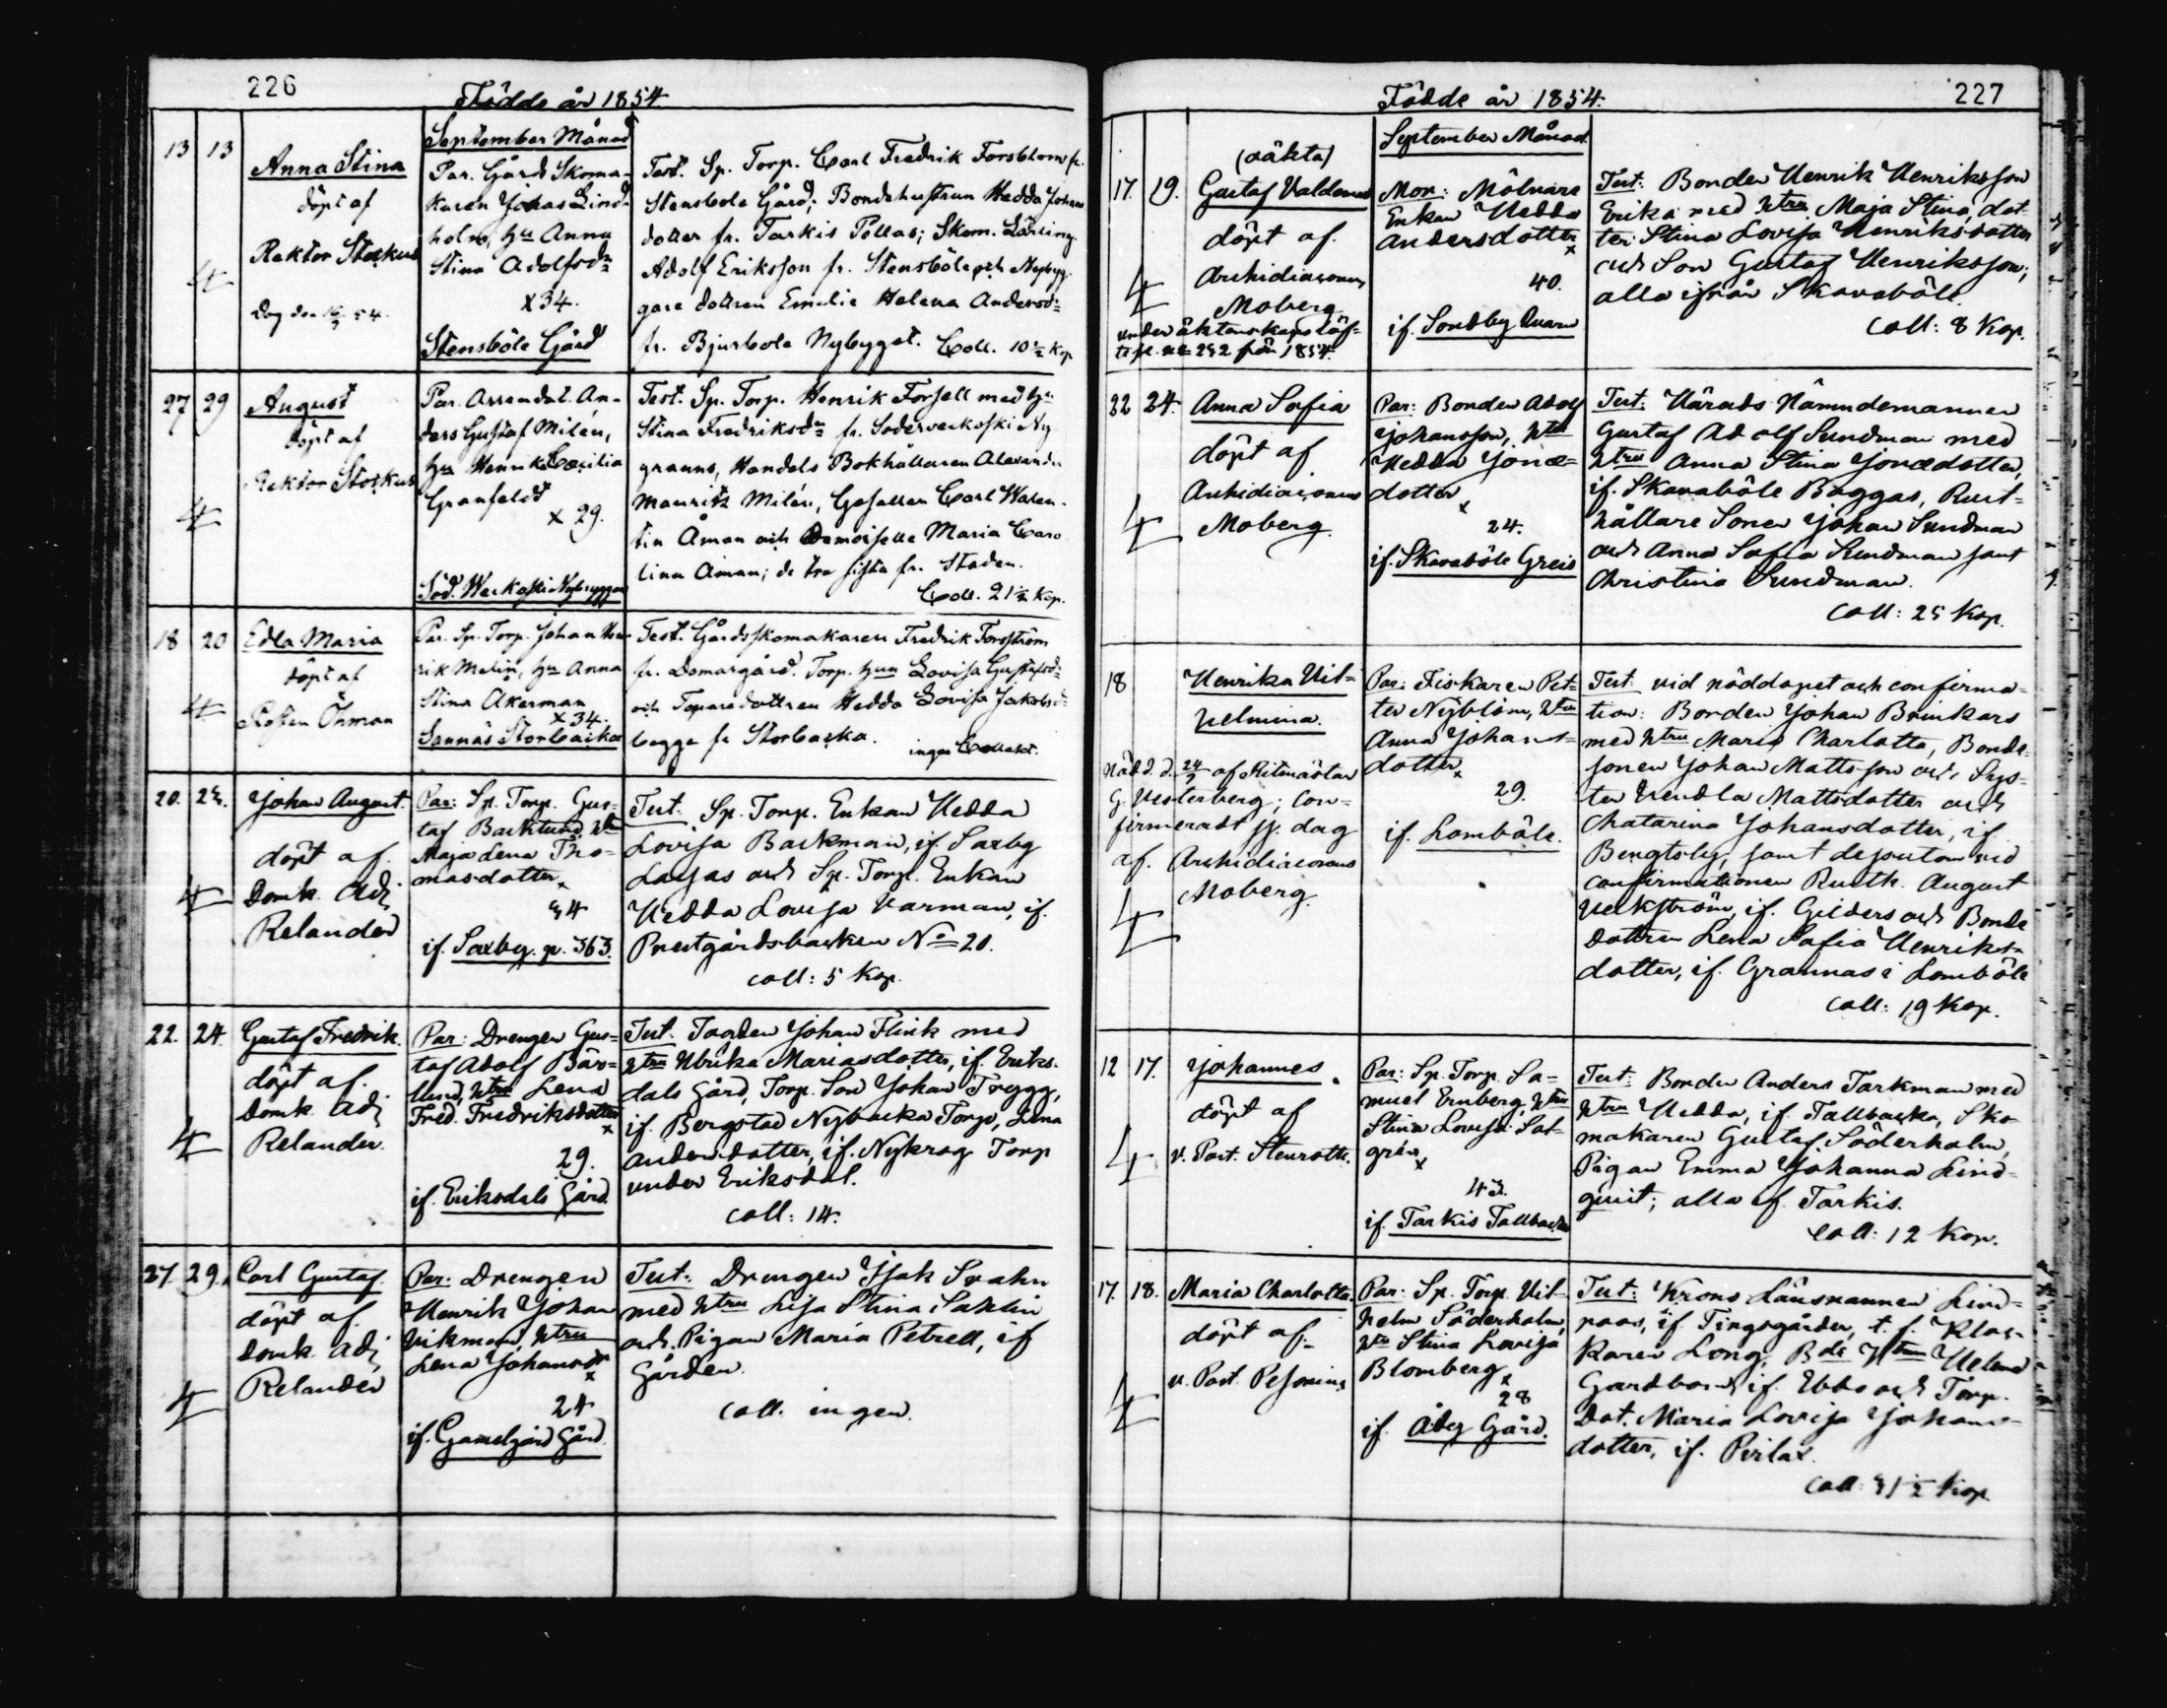 226
Födde år 1854.
September Månad
13 13
Anna Stina
döpt af
Rektor Storkus
Dog den 16/9 54.
Par. Gårds Skoma-
karen Johas Lind-
holm, hu Anna
Stina Adolfsdr
x 34.
Stensböle Gård
Test. Sp. Torp. Carl Fredrik Forsblom fr.
Stensbole Gård; Bondehustrun Hedda Johans
dotter fr. Tarkis Pellas; Skom. Lärling.
Adolf Eriksson fr. Stensböle och Nybyg-
gare dottren Emelie Helena Andersdr
fr. Bjurbole Nybygget. Coll. 10½ Kop
27 29
August
döpt af
Rektor Storkus
Par. Arrendat. An-
ders Gustaf Milén,
hu Henrika Cecilia
Granfeldt
x 29.
Söd. Weckoski Nybyggan
Test. Sp. Torp. Henrik Forsell med hu
Stina Fredriksdr fr. Söderveckoski Ny
granns, Handels Bokhållaren Alexander
Mauritz Milén, Gesällen Carl Walen-
tin Åman och Demoiselle Maria Caro
lina Åman; de tre sista fr. Staden.
Coll. 21½ Kop.
18 20
Edla Maria
döpt af
Rosten Öhman
Par. Sp. Torp. Johan Hen-
rik Melin, hu Anna
Stina Akerman
x 34.
Sannäs Storbacka
Test. Gårdsskomakaren Fredrik Forsström
fr. Domargård. Torp. hun Lovisa Gustafsdr
och Toparedottren Hedda Lovisa Jakobsd-
begge fr Storbacka. ingen Collekt.
20. 24.
Johan August.
döpt af.
Domk. Adj.
Relander
Par: Sp. Torp. Gus-
taf Backlund, htru
Maja Lena Tho-
masdotter x
34
if. Saxby. p. 363.
Test. Sp. Torp. Enkan Hedda
Lovisa Backman, if. Saxby
Lassas och Sp. Torp. Enkan
Hedda Lovisa Varman, if.
Prestgårdsbacken No 20.
coll: 5 Kop.
22. 24.
Gustaf Fredrik.
döpt af.
Domk. Adj
Relander.
Par: Drengen Gus-
taf Adolf Bäck-
lund, htru Lena
Fred. Fredriksdotter
x
29.
if. Eriksdals Gård.
Test. Torpden Johan Flink med
htru Ulrika Mariasdotter, if. Eriks-
dals Gård, Torp. Son Johan Trygg,
if. Bergstad Nybacka Torp, Lena
Andersdotter, if. Nykrog Torp
under Eriksdal.
coll: 14.
27. 29.
Carl Gustaf.
döpt af.
Domk. Adj
Relander
Par: Drengen
Henrik Johan
Vikman, htru
Lena Johansdr
x
24
if. Gamelgård Gård.
Test: Drengen Isak Svahn
med htru Lisa Stina Sahlin
och Pigan Maria Petrell, if
Gården.
coll. ingen.
227
Födde år 1854.
September Månad.
17. 19.
(oäkta)
Gustaf Valdemar
döpt af.
Archidiaconus
Moberg
under äktenskapslöf-
te se. No 252 från 1854.
Mor: Mölnare
Enkan Hedda
Andersdotter
x
40.
if. Sondby Quarn
Test: Bonden Henrik Henriksson
Erika med htru Maja Stina, dot-
ter Stina Lovisa Henriksdotter
och Son Gustaf Henriksson;
alla ifrån Skavaböle.
coll: 8 Kop.
22 24.
Anna Sofia
döpt af
Archidiaconus
Moberg.
Par: Bonden Adolf
Johansson, htru
Hedda Jonæ-
dotter
x
24.
if. Skavaböle Greis
Test: Härads Nämndemannen
Gustaf Adolf Sundman med
htru Anna Stina Jonædotter,
if. Skavaböle Baggas, Rust-
hållare Sonen Johan Sundman
och Anna Sofia Sundman samt
Christina Sundman.
coll: 25 Kop.
18
Henrika Vil-
helmina.
nödd. d. 24/9 af Ritmästar
G. Vesterberg; con-
firmeradt s. dag
af. Archidiaconus
Moberg.
Par: Fiskaren Pet-
ter Nyblom, htru
Anna Johans-
dotter x
29.
if. Lomböle.
Test. vid nöddopet och confirma-
tion: Bonden Johan Brinkars
med htru Maria Charlotta, Bonde-
sonen Johan Mattsson och Sys-
ter Hendla Mattsdotter och
Chatarina Johansdotter, if
Bengtsby, samt dessutom vid
confirmationen Rusth. August
Veckström, if. Gilders och Bonde
dottren Lena Sofia Henriks-
dotter, if. Grannas i Lomböle
coll: 19 Kop.
12 17.
Johannes.
döpt af
v. Past. Stenroth.
Par: Sp. Torp. Sa-
muel Ernberg, htru
Stina Lovisa Sal-
grén x
43.
if. Tarkis Tallbacka
Test: Bonden Anders Tarkman med
htru Hedda, if. Tallbacka, Sko-
makaren Gustaf Söderholm,
Pigan Emma Johanna Lind-
quist; alla if. Tarkis.
coll: 12 Kop.
17. 18.
Maria Charlotta.
döpt af.
v. Past. Pesonius
Par: Sp. Torp. Vil-
helm Söderholm,
htru Stina Lovisa
Blomberg x
28
if. Åby Gård.
Test: Krono Länsmannen Lind-
roos, if. Tingsgården, t. f. Kloc-
karen Long, Bde Htru Helena
if. Ebbo och Torp.
Dot. Maria Lovisa Johans-
dotter, if. Pirlax.
coll: 31½ Kop